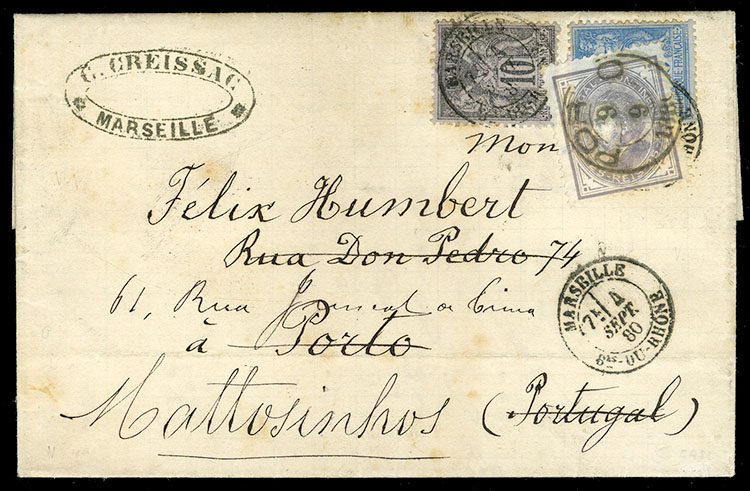 C. CREISSAC
MARSEILLE
MARSEILLE
10
PORTO
Mon
Félix Humbert
Rua Don Pedro 74
61, Rua
à Porto
Mattosinhos (Portugal)
MARSEILLE
7E 4
SEPT.
80
BES-DU-RHÔNE